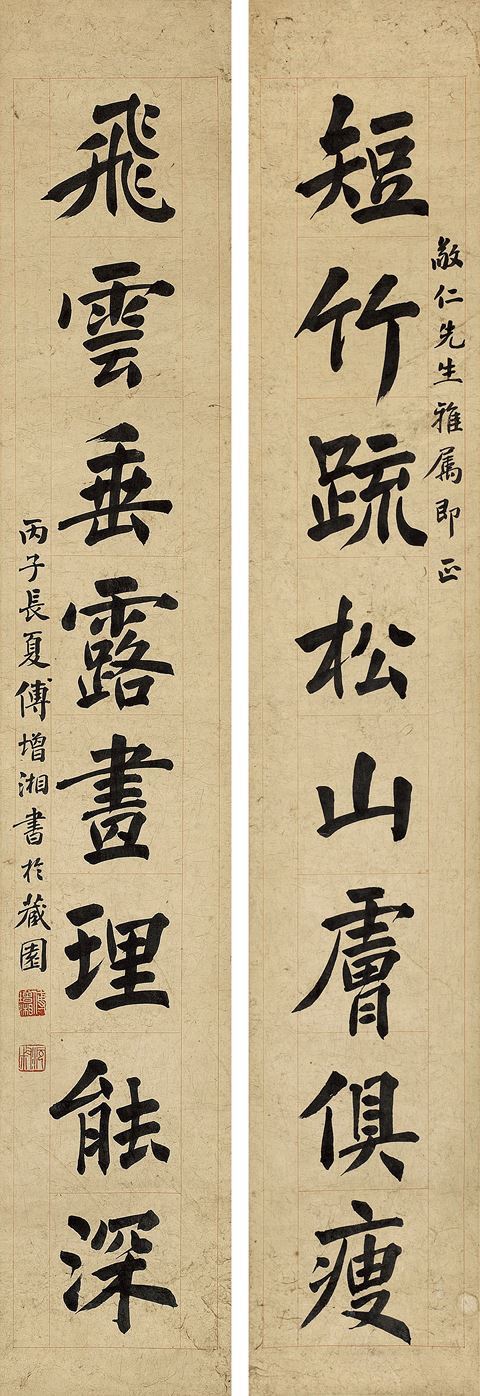 短竹䟽松山膚俱瘦
仁先生雅属即正
飛雲垂露畫理能深
丙子長夏傅增湘書於藏園